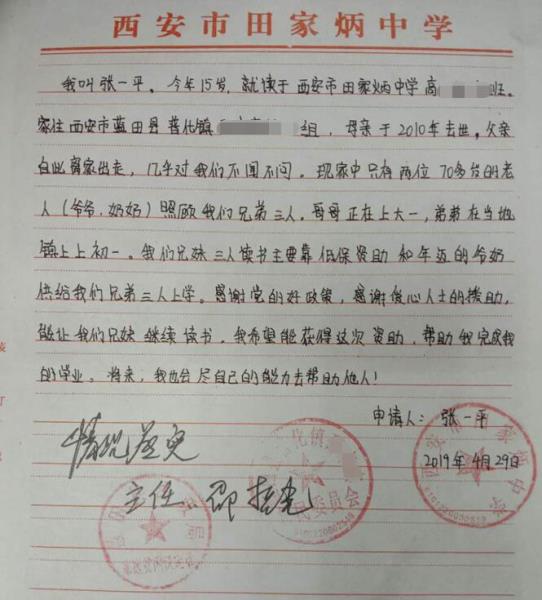 西安市田家炳中学
我叫张一平。今年15岁，就读于西安市田家炳中学高 班。
家住西安市蓝田县普化镇 组，母亲于2010年去世。父亲
自此离家出走，几乎对我们不闻不问。现家中只有两位70多岁的老
人（爷爷、奶奶）照顾我们兄弟三人。哥哥正在上大一，弟弟在当地
镇上上初一。我们兄妹三人读书主要靠低保资助和年迈的爷奶
供给我们兄弟三人上学。感谢党的好政策，感谢爱心人士的援助，
能让我们兄妹继续读书。我希望能获得这次资助，帮助我完成我
的学业。将来，我也会尽自己的能力去帮助他人！
申请人：张一平
2019年4月29日
情况属实
主任